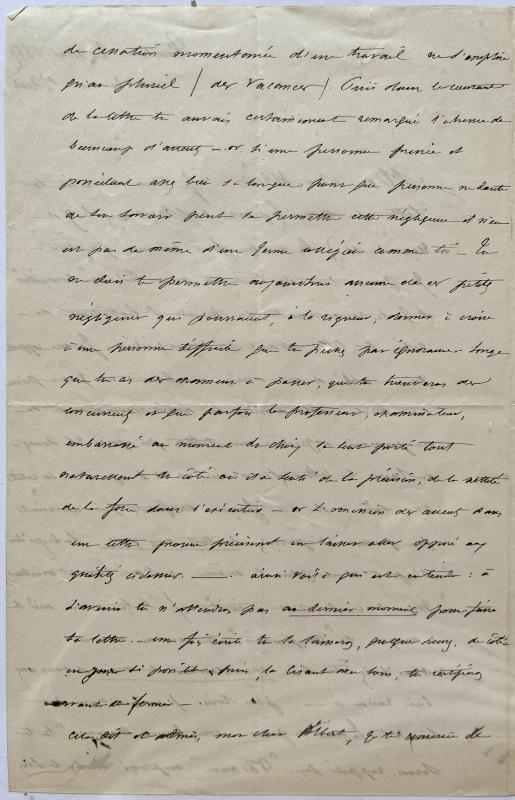 de cessation momentanée d'un travail ne s'emploie
qu'au pluriel / des vacances /. Puis dans le courant
de la lettre tu aurais certainement remarqué l'absence de
beaucoup d'accens – or si une personne
possédant assez bien sa langue pour que personne ne doute
de son savoir peut se permettre cette négligence il n'en
est pas de même d'un jeune collégien comme toi – Tu
ne dois te permettre aujourd'hui aucune de ces petites
négligences qui pourraient, à la rigueur, donner à croire
à une personne difficile que tu pèches par ignorance. Songe
que tu as des examens à passer, que tu trouveras des
concurrens et que parfois le professeur, examinateur,
embarrassé au moment du choix se sent porté tout
naturellement du côté où il a senti de la précision, de la netteté
de la force dans l'exécution – or l'omission des accens dans
une lettre prouve précisément un laisser aller opposé aux
qualités cidessus. —— . ainsi voilà qui est entendu : à
l'avenir tu n'attendras pas au dernier moment pour faire
ta lettre .. une fois écrite tu la laisseras, quelque tems, de côté
un jour si possible, puis, la lisant avec soin, tu
avant de fermer –
Ceci dit et admis, mon cher Albert, je te remercie de